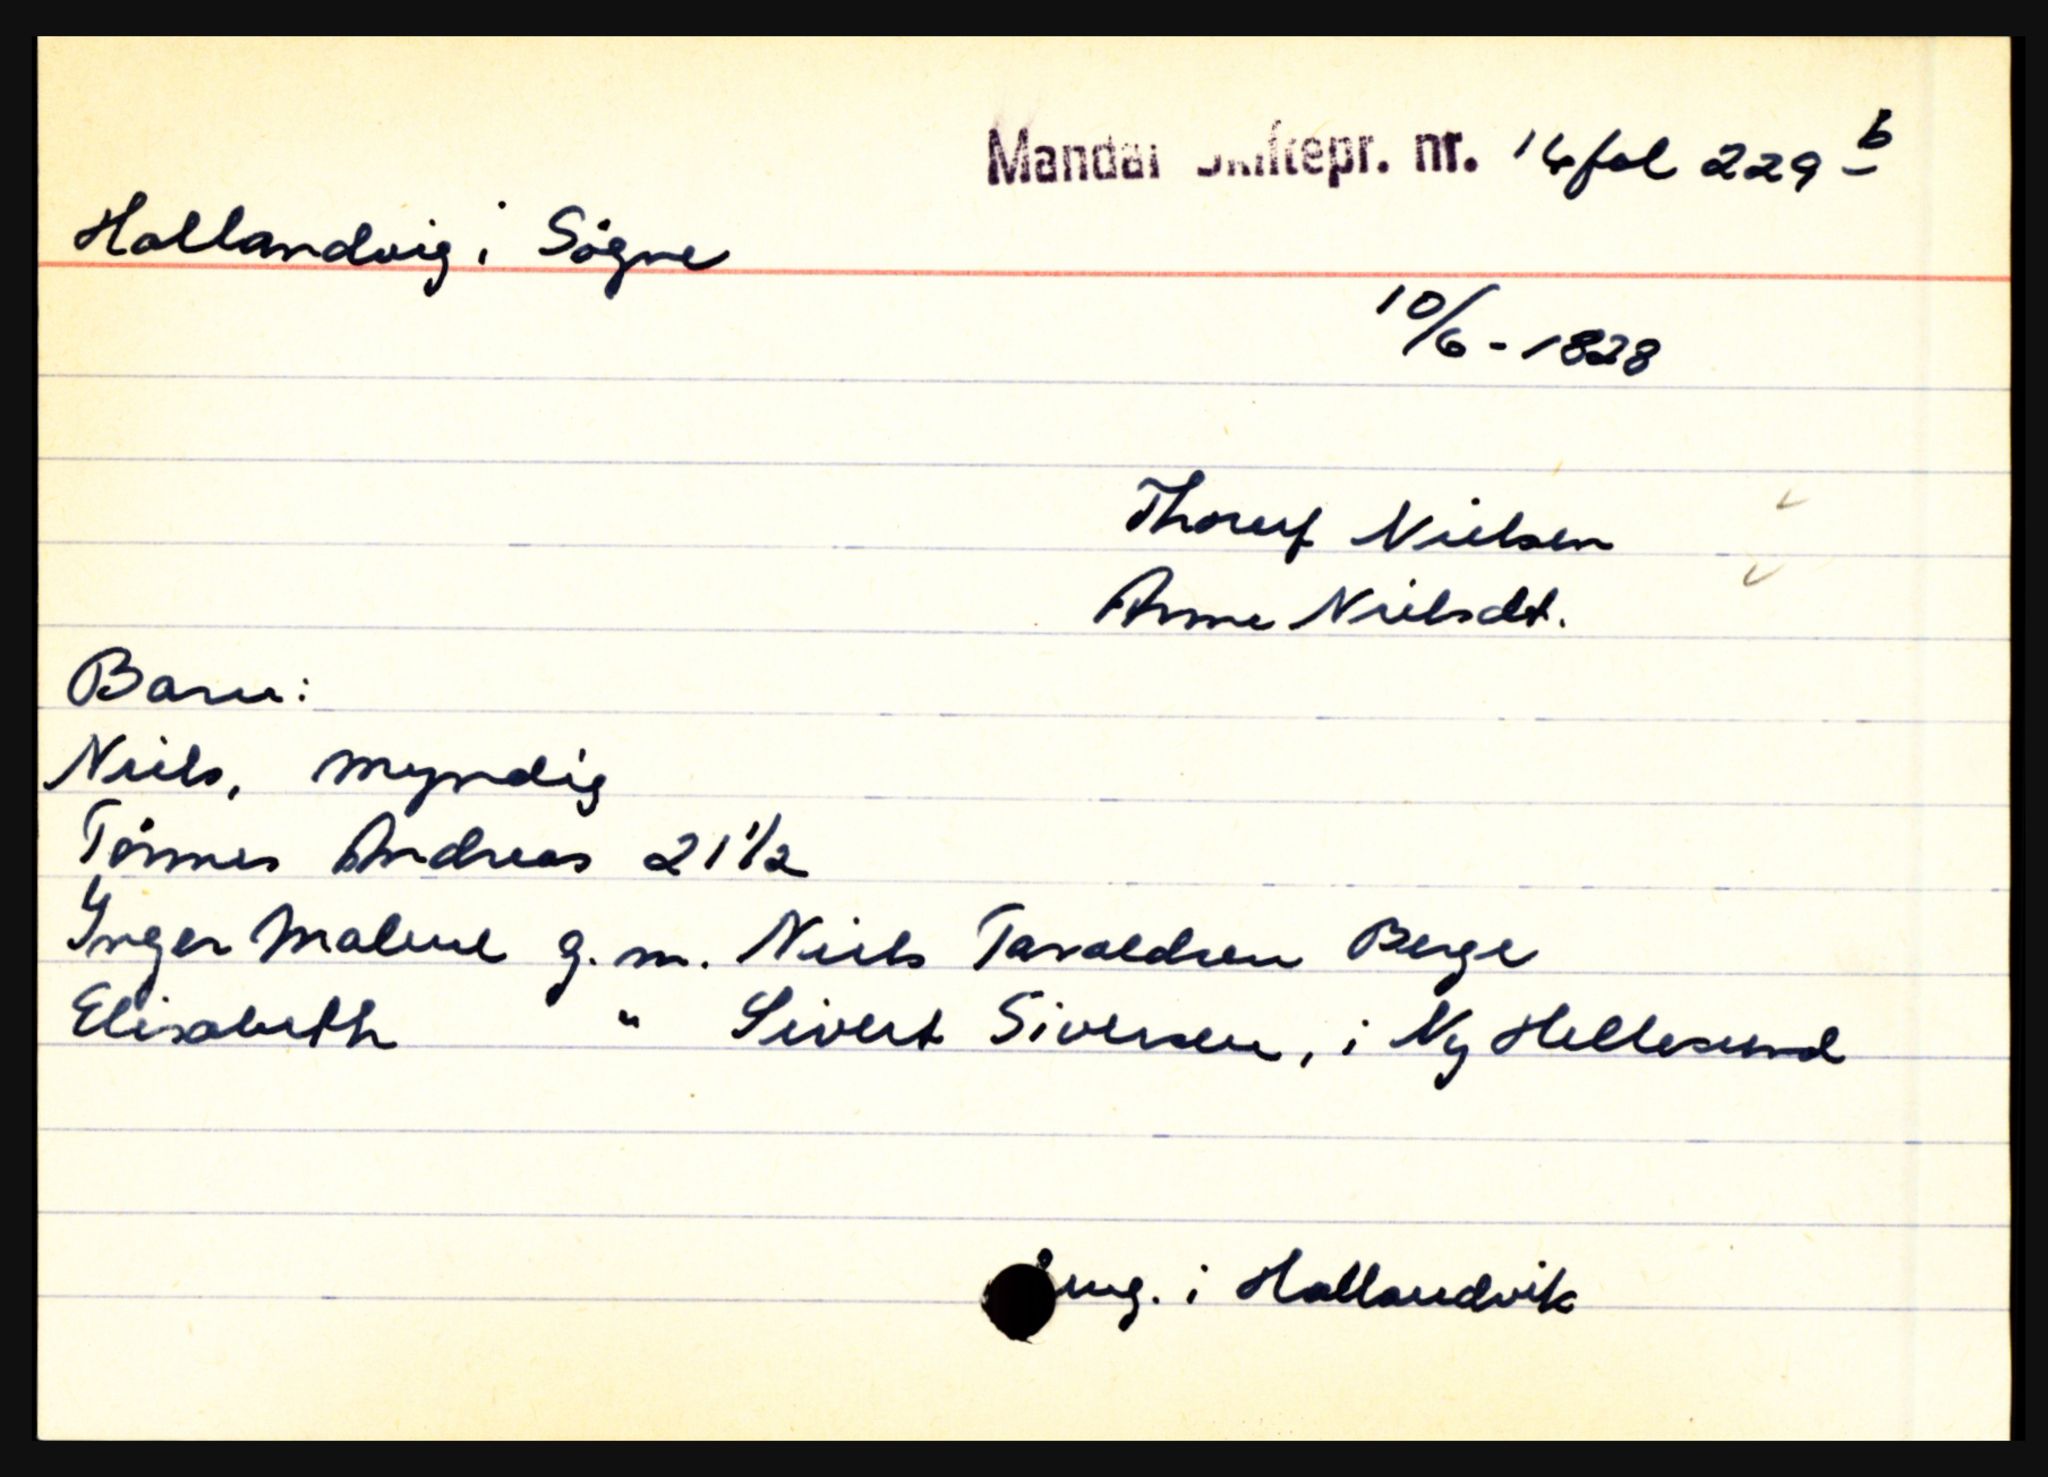 Mandal Skiftepr. nr. 14 fol 229 b
Hallandvig i Søgne
10/6 - 1828
Thorer Nielsen
Anne Nielsdt.
Barn:
Niels, myndig
Tønnes Andreas 21 1/2
Inger Malene g. m. Niels Tarvaldsen Berge
Elisabeth " Sivert Siversen, i Ny Hellesund
i Hallandvik